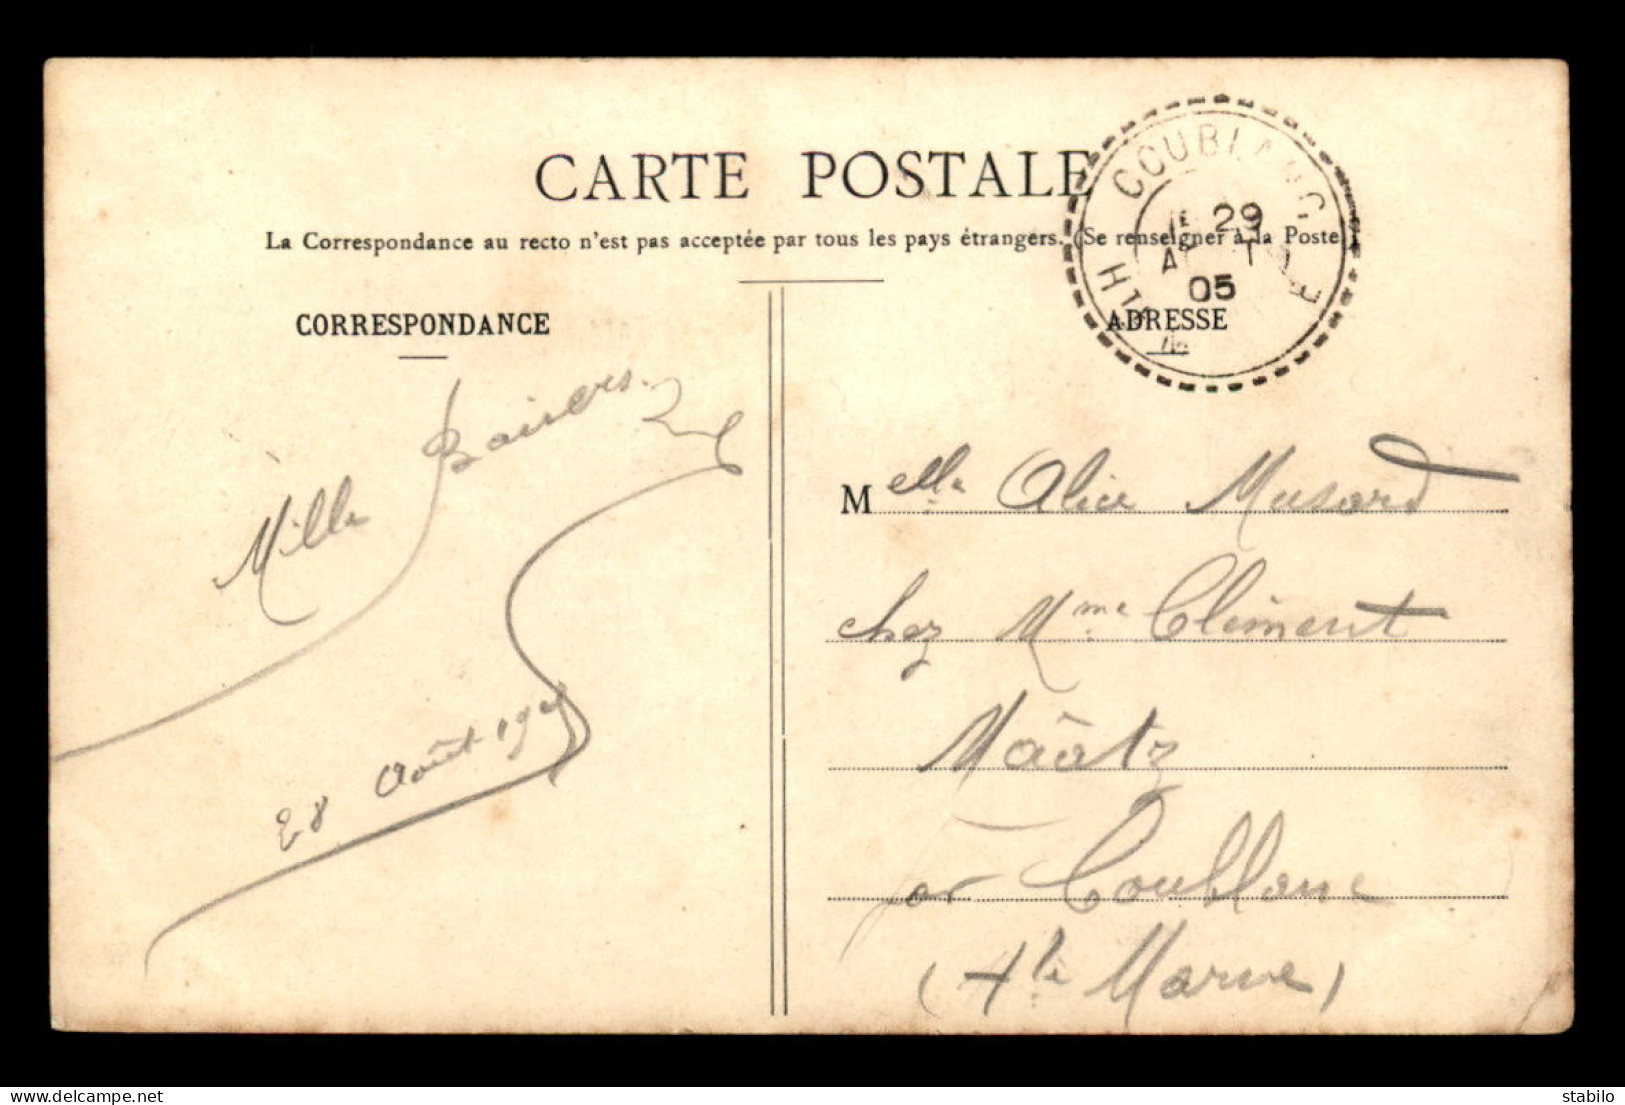 CARTE POSTALE
La Correspondance au recto n'est pas acceptée par tous les pays étrangers. (Se renseigner à la Poste)
COUBLANC
29
05
HTE
CORRESPONDANCE
ADRESSE
Mille Baisers.
28 Août 190
Melle Alice Musard
chez Mme Clément
Mâatz
par Coublanc
(Hte Marne)
delcampe.net
stabilo